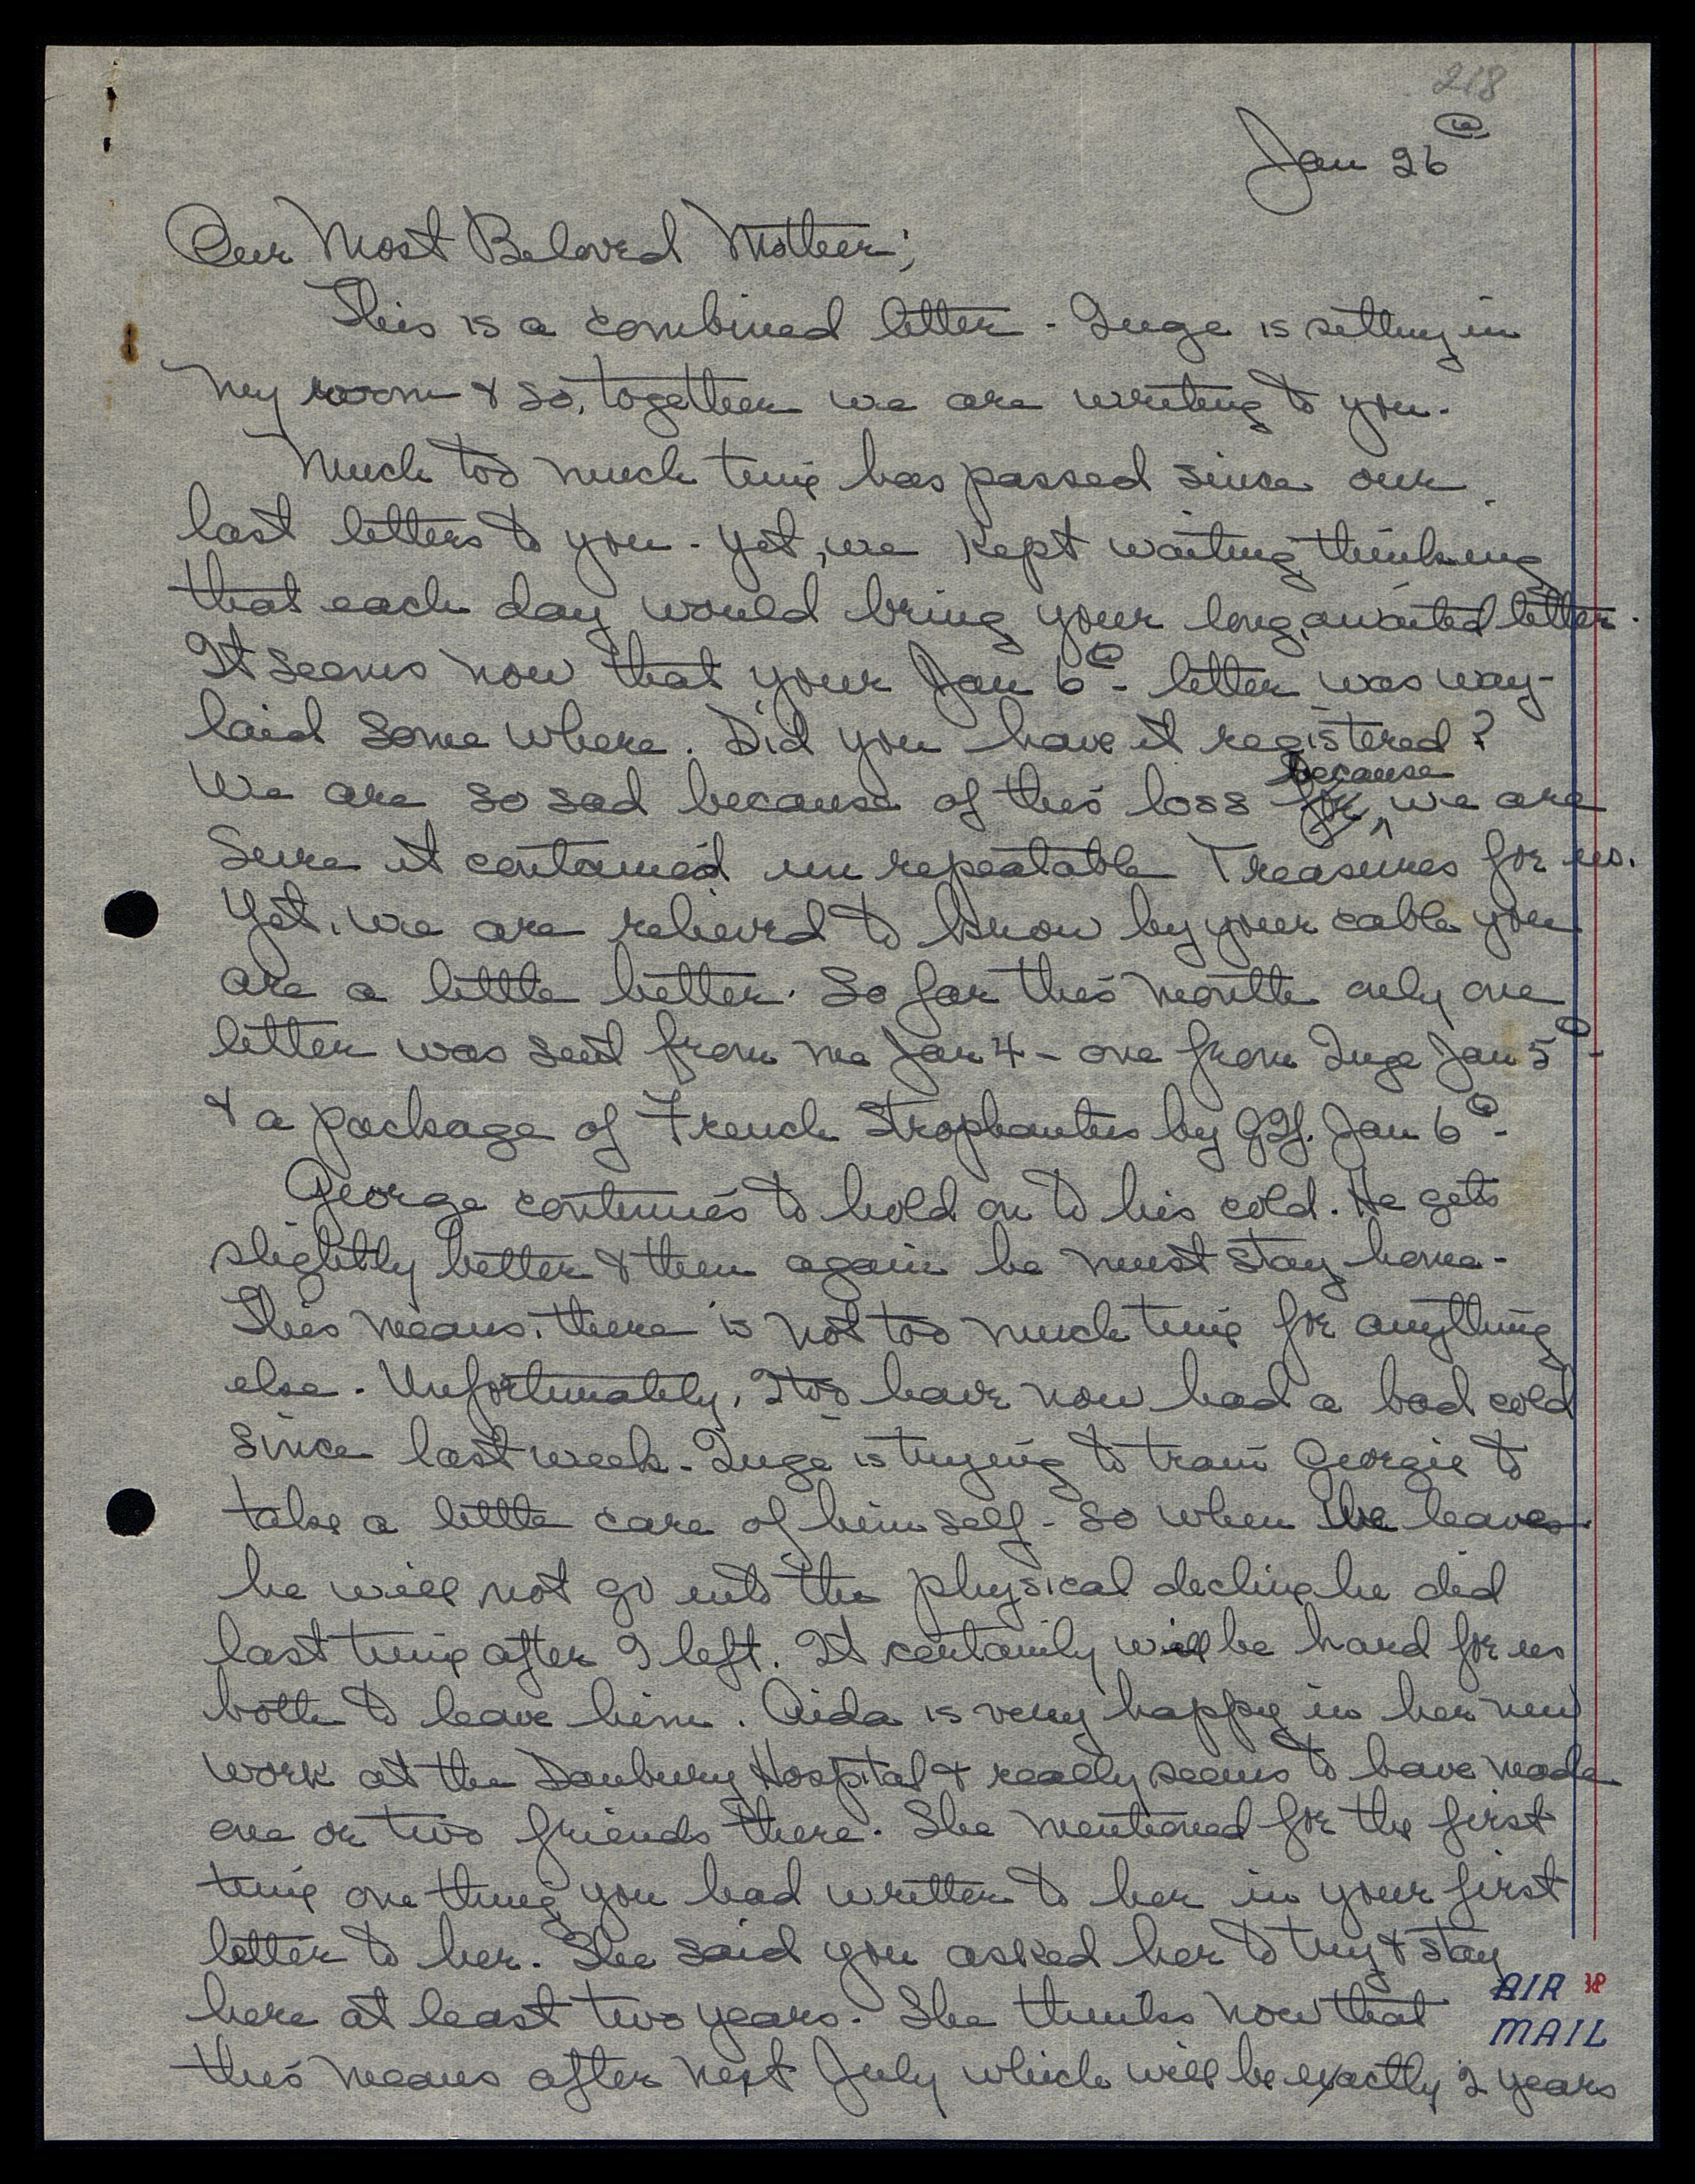 218
Jan 26th
Our Most Beloved Mother;
This is a combined letter - Inge is sitting in
my room & so, together we are writing to you.
Much too much time has passed since our
last letters to you. Yet, we kept waiting thinking
that each day would bring your long, awaited letter.
It seems now that your Jan 6th - letter was way-
laid some where. Did you have it registered?
We are so sad because of this loss for because we are
sure it contained unrepeatable Treasures for us.
Yet, we are relieved to know by your cable you
are a little better. So far this month only one
letter was sent from me Jan 4 - one from Inge Jan 5th -
& a package of French Strophantus by Jan 6th -
George continues to hold on to his cold. He gets
slightly better & then again he must stay home -
This means, there is not too much time for anything
else. Unfortunately, I too have now had a bad cold
since last week. Inge is trying to train Georgie to
take a little care of himself - so when we leave
he will not go into the physical decline he did
last time after I left. It certainly will be hard for us
both to leave him. Aida is very happy in her new
work at the Danbury Hospital & really seems to have made
one or two friends there. She mentioned for the first
time one thing you had written to her in your first
letter to her. She said you asked her to try & stay
here at least two years. She thinks now that
this means after next July which will be exactly 2 years
AIR
MAIL